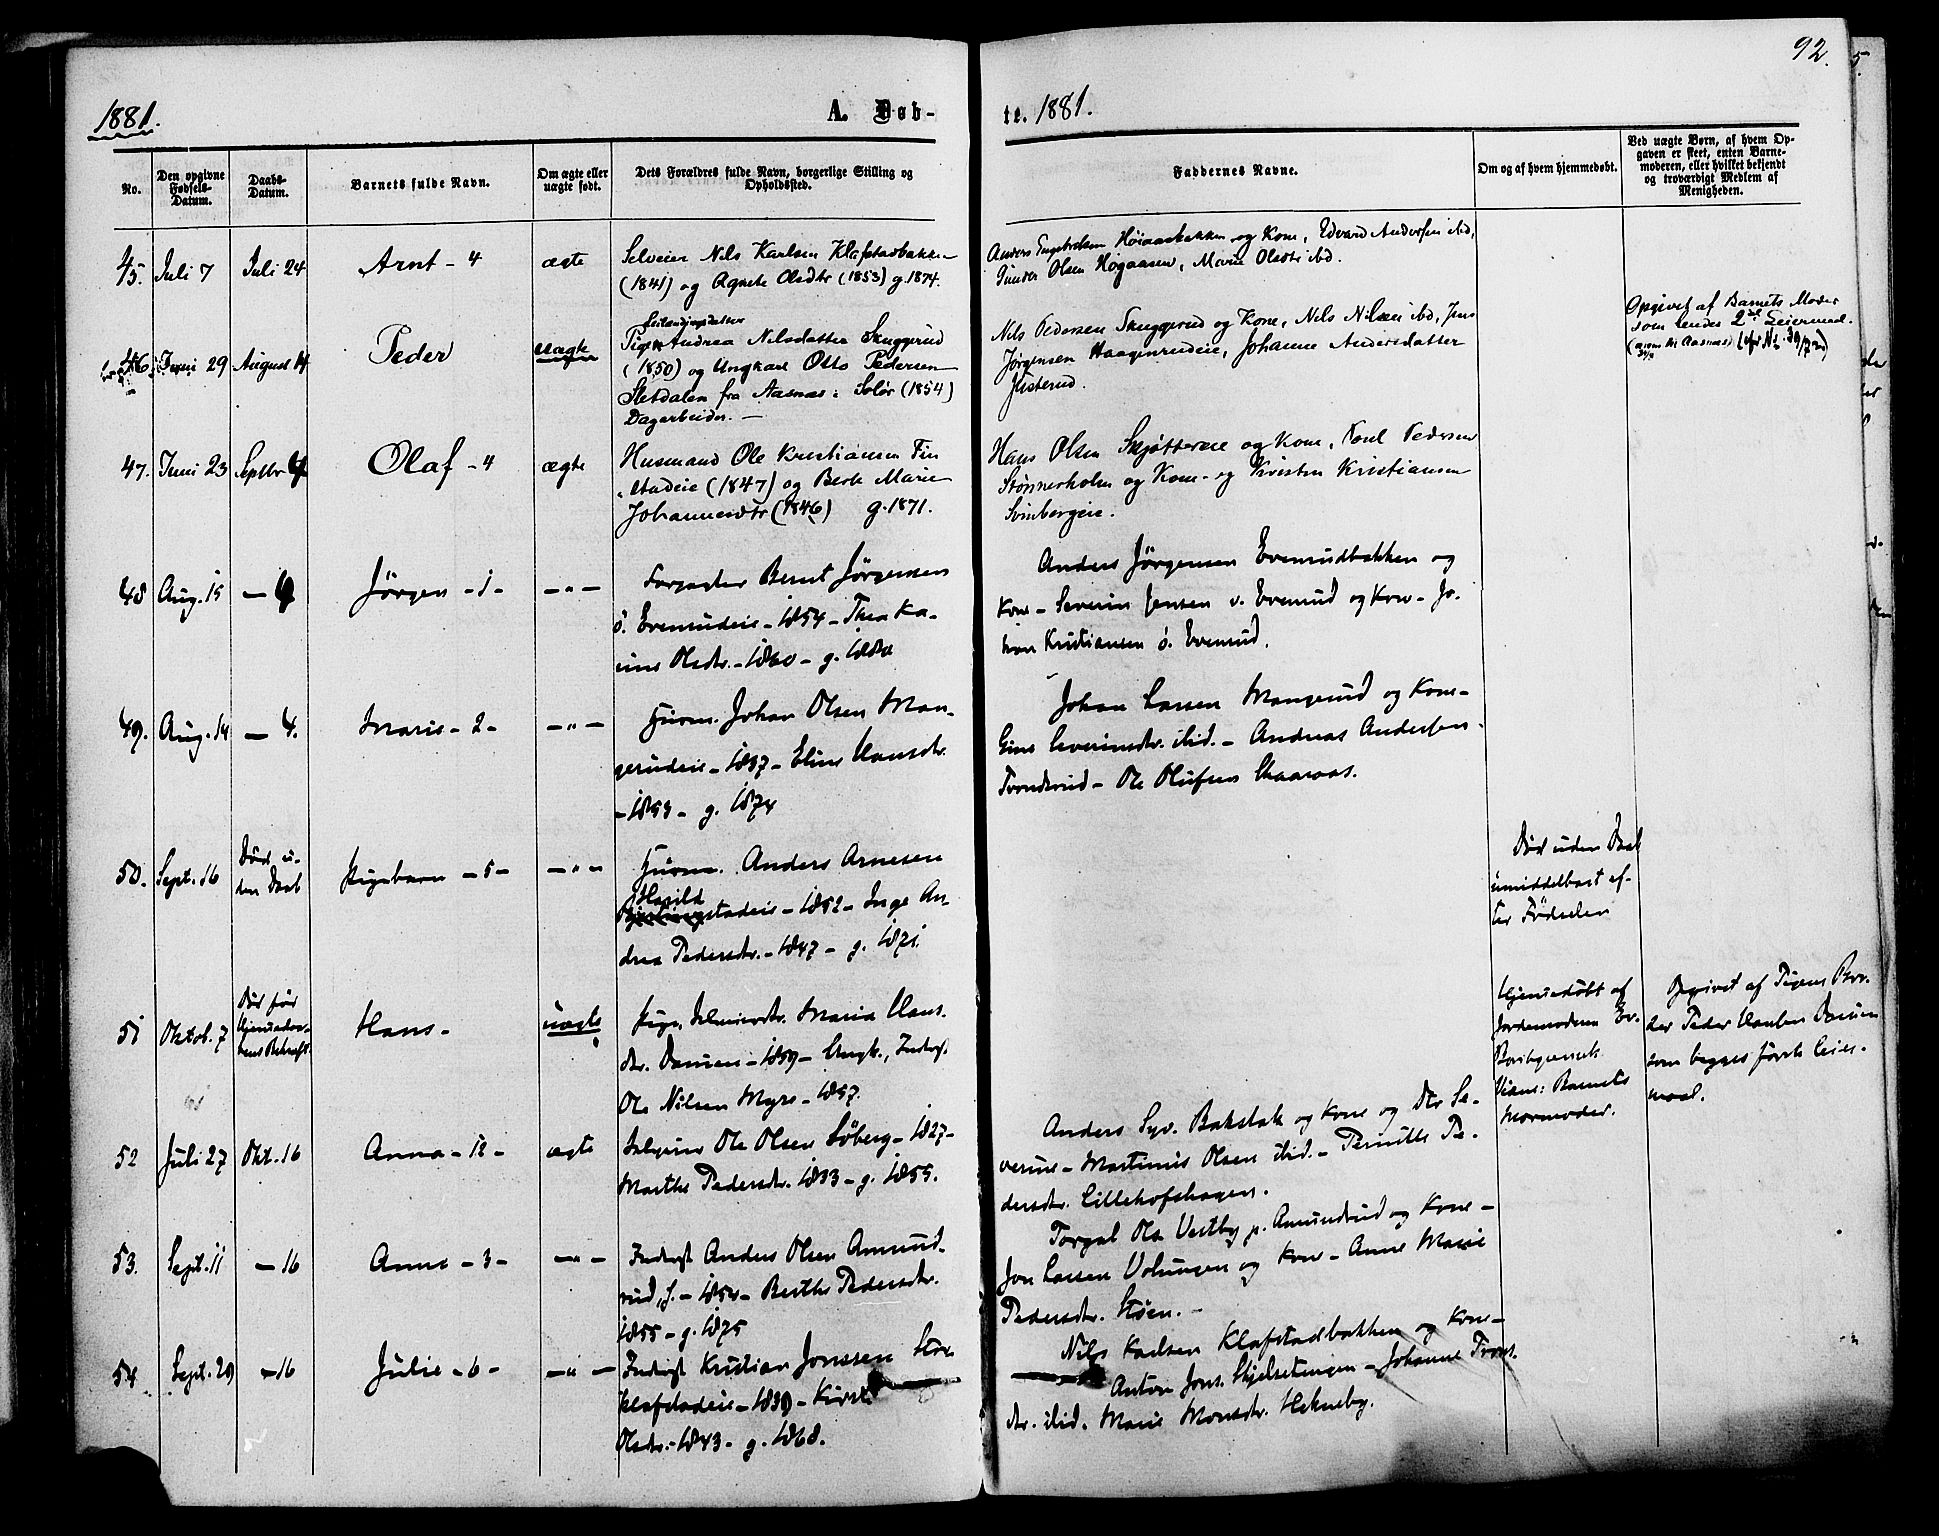 92.
1881.
A. Døb-
te. 1881.
No.
Den opgivne Fødsels-Datum.
Daabs-Datum.
Barnets fulde Navn.
Om ægte eller uægte født.
Dets Forældres fulde Navn, borgerlige Stilling og Opholdssted.
Faddernes Navne.
Om og af hvem hjemmedøbt.
Ved uægte Børn, af hvem Opgaven er skeet, enten Barnemoderen, eller hvilket bekjendt og troværdigt Medlem af Menigheden.
45. Juli 7 Juli 24 Arnt - 4 ægte
Selveier Nils Karlsen Klafstadbakken
(1841) og Agnete Olsdtr (1853) g. 1874.
Anders Engebretsen Høiaasbakken og Kone, Edvard Andersen ibd,
Gunder Olsen Høgaasen, Marie Olsdtr ibd.
46. Juni 29 August 14 Peder uægte
Pige Andrea Nilsdatter Skuggerud
(1850) og Ungkarl Otto Pedersen
Sletdalen fra Aasnæs i Solør (1854)
Dagarbeider. -
Nils Pedersen Skuggerud og Kone, Nils Nilsen ibd, Jens
Jørgensen Haagenrudeie, Johanne Andersdatter
Justerud.
Opgivet af Barnets Moder
som hendes 2det Leiermaal.
47. Juni 23 Septbr 4 Olaf - 4 ægte
Husmand Ole Kristiansen Fin
stadeie (1847) og Berte Marie
Johannesdtr (1846) g. 1871.
Hans Olsen Skjøttereie og Kone, Poul Pedersen
Stønnerholen og Kone - og Kristen Kristiansen
Svinbergeie.
48 Aug. 15 - 4 Jørgen - 1 - - " -
Forpagter Bernt Jørgensen
ø. Evenrudeie - 1854 - Thea Ka-
rine Olsdtr. - 1860 - g. 1880
Anders Jørgensen Evenrudbakken og
Kone - Severin Jensen v. Evenrud og Kone - Jo-
han Kristiansen ø. Evenrud.
49. Aug. 14 - 4. Marie - 2 - - " -
Husm. Johan Olsen Man-
gerudeie - 1847 - Eline Hansdtr.
- 1853 - g. 1874
Johan Larsen Mangerud og Kone -
Gine Severinsdtr. ibid. - Andreas Andersen
Tronderud - Ole Olufsen Skaaraas.
50. Sept. 16 Død u-
den Daab Pigebarn - 5 - - " -
Husm. Anders Arnesen
Harild
stadeie - 1852 - Inge An-
drea Pedersdtr. - 1847 - g. 1871.
Død uden Daab
umiddelbart ef-
ter Fødselen
51 Oktob. 7 Død før
Hjemmedaa-
bens Bekræft. Hans - uægte
Pige, Selveierdtr. Maria Hans
dtr. Damen - 1859 - Ungk., Inderst
Ole Nilsen Myre - 1857.
Hjemmedøbt af
Jordemoderen
Barnets
Mormoder.
Opgivet af Pigens Bro-
der Peder Hansen Damen
som begges første Leier-
maal.
52 Juli 27 Okt. 16 Anna - 12 - ægte
Selveier Ole Olsen Søberg - 1827 -
Marthe Pedersdtr. 1833 - g. 1855.
Anders Syv. Bakstak og Kone og Dtr Se-
verine - Martinus Olsen ibid. - Pernille Pe-
dersdtr. Lillehofshagen.
53. Sept. 11 - 16 Anne - 3 - - " -
Inderst Anders Olsen Amund-
rud, s. - 1854 - Berthe Pedersdtr.
1855 - g. 1875
Torgal Ols. Vestby p. Amundrud og Kone -
Jon Larsen Volungen og Kone - Anne Marie
Pedersdtr. Støen. -
54 Sept. 29 - 16 Julie - 6 - - " -
Inderst Kristian Jonssen Stor
Klafstadeie - 1839 - Kirsti
Olsdtr. - 1843 - g. 1868.
Nils Karlsen Klafstadbakken og Kone -
Anton Jons. Skjelsetengen - Johanne Trons
dtr. ibid. Marie Monsdtr. Hekneby.